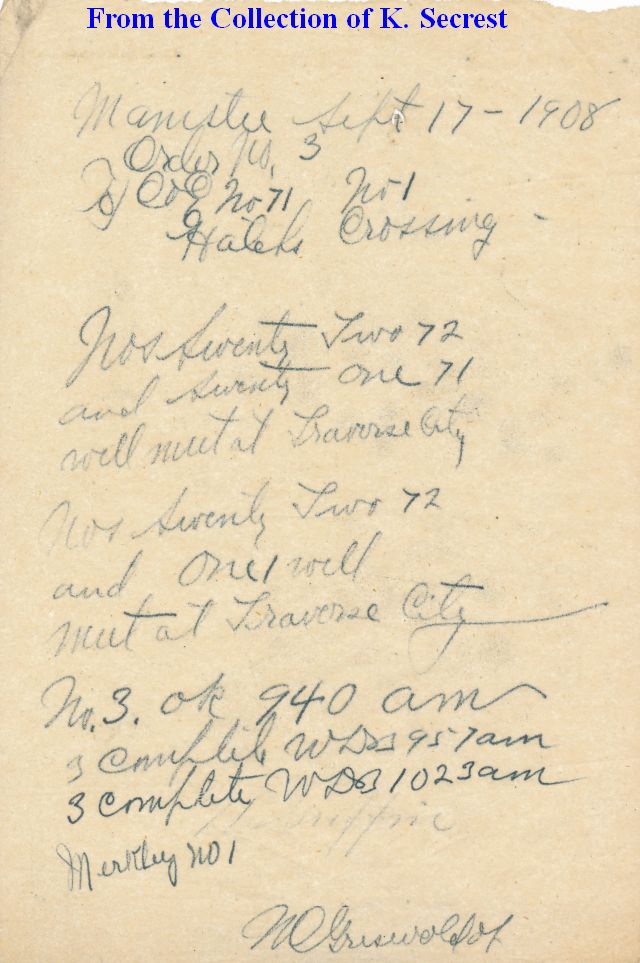 From the Collection of K. Secrest
Manistee Sept 17 - 1908
Order No. 3
To C&E No 71 No 1
Hatchs Crossing -
Nos Twenty Two 72
and Twenty One 71
will meet at Traverse City
Nos Twenty Two 72
and One 1 will
meet at Traverse City
No. 3. ok 940 am
3 Complete WDB 957am
3 complete WDB 1023am
Merkley No 1
Griswold